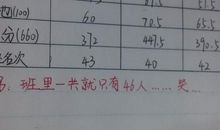 (100) 60 70.5 65.5
分(660) 372 447.5 390.5
名次 43 40 42
班里一共就只有46人……哭…